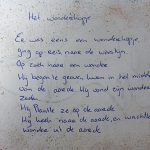 Het wonderhapje
Er was eens een wonderhapje
ging op reis, naar de woestijn.
Op zoek naar een wonder
Hij begon te graven, kwam in het midden
van de aarde. Hij vond zijn wonder
zaden
Hij plantte ze op de aarde
Hij keek naar de aarde, en wachtte
wonder uit de aarde